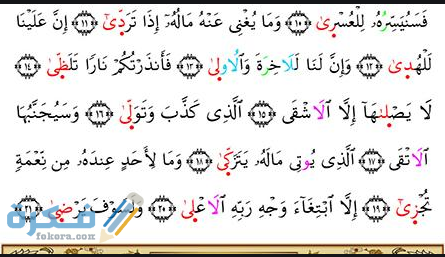 فَسَنُيَسِّرُهُۥ لِلْعُسْرِىٰ ﴿١٠﴾ وَمَا يُغْنِى عَنْهُ مَالُهُۥٓ إِذَا تَرَدِّىٰٓ ﴿١١﴾ إِنَّ عَلَيْنَا
لَلْهُدِىٰ ﴿١٢﴾ وَإِنَّ لَنَا لَلَاخِرَةَ وَالُاولِىٰ ﴿١٣﴾ فَأَنذَرْتُكُمْ نَارًا تَلَظِّىٰ ﴿١٤﴾
لَا يَصْلِىٰهَآ إِلَّا اَلَاشْقَى ﴿١٥﴾ اَلَّذِى كَذَّبَ وَتَوَلِّىٰ ﴿١٦﴾ وَسَيُجَنَّبُهَا
اَلَاتْقَى ﴿١٧﴾ اَلَّذِى يُوتِى مَالَهُۥ يَتَزَكِّىٰ ﴿١٨﴾ وَمَا لِأَحَدٍ عِندَهُۥ مِن نِّعْمَةٍ
تُجْزِىٰٓ ﴿١٩﴾ إِلَّا اَبْتِغَآءَ وَجْهِ رَبِّهِ اِلَاعْلِىٰ ﴿٢٠﴾ وَلَسَوْفَ يَرْضِىٰ ﴿٢١﴾
فكرة
fokora.com